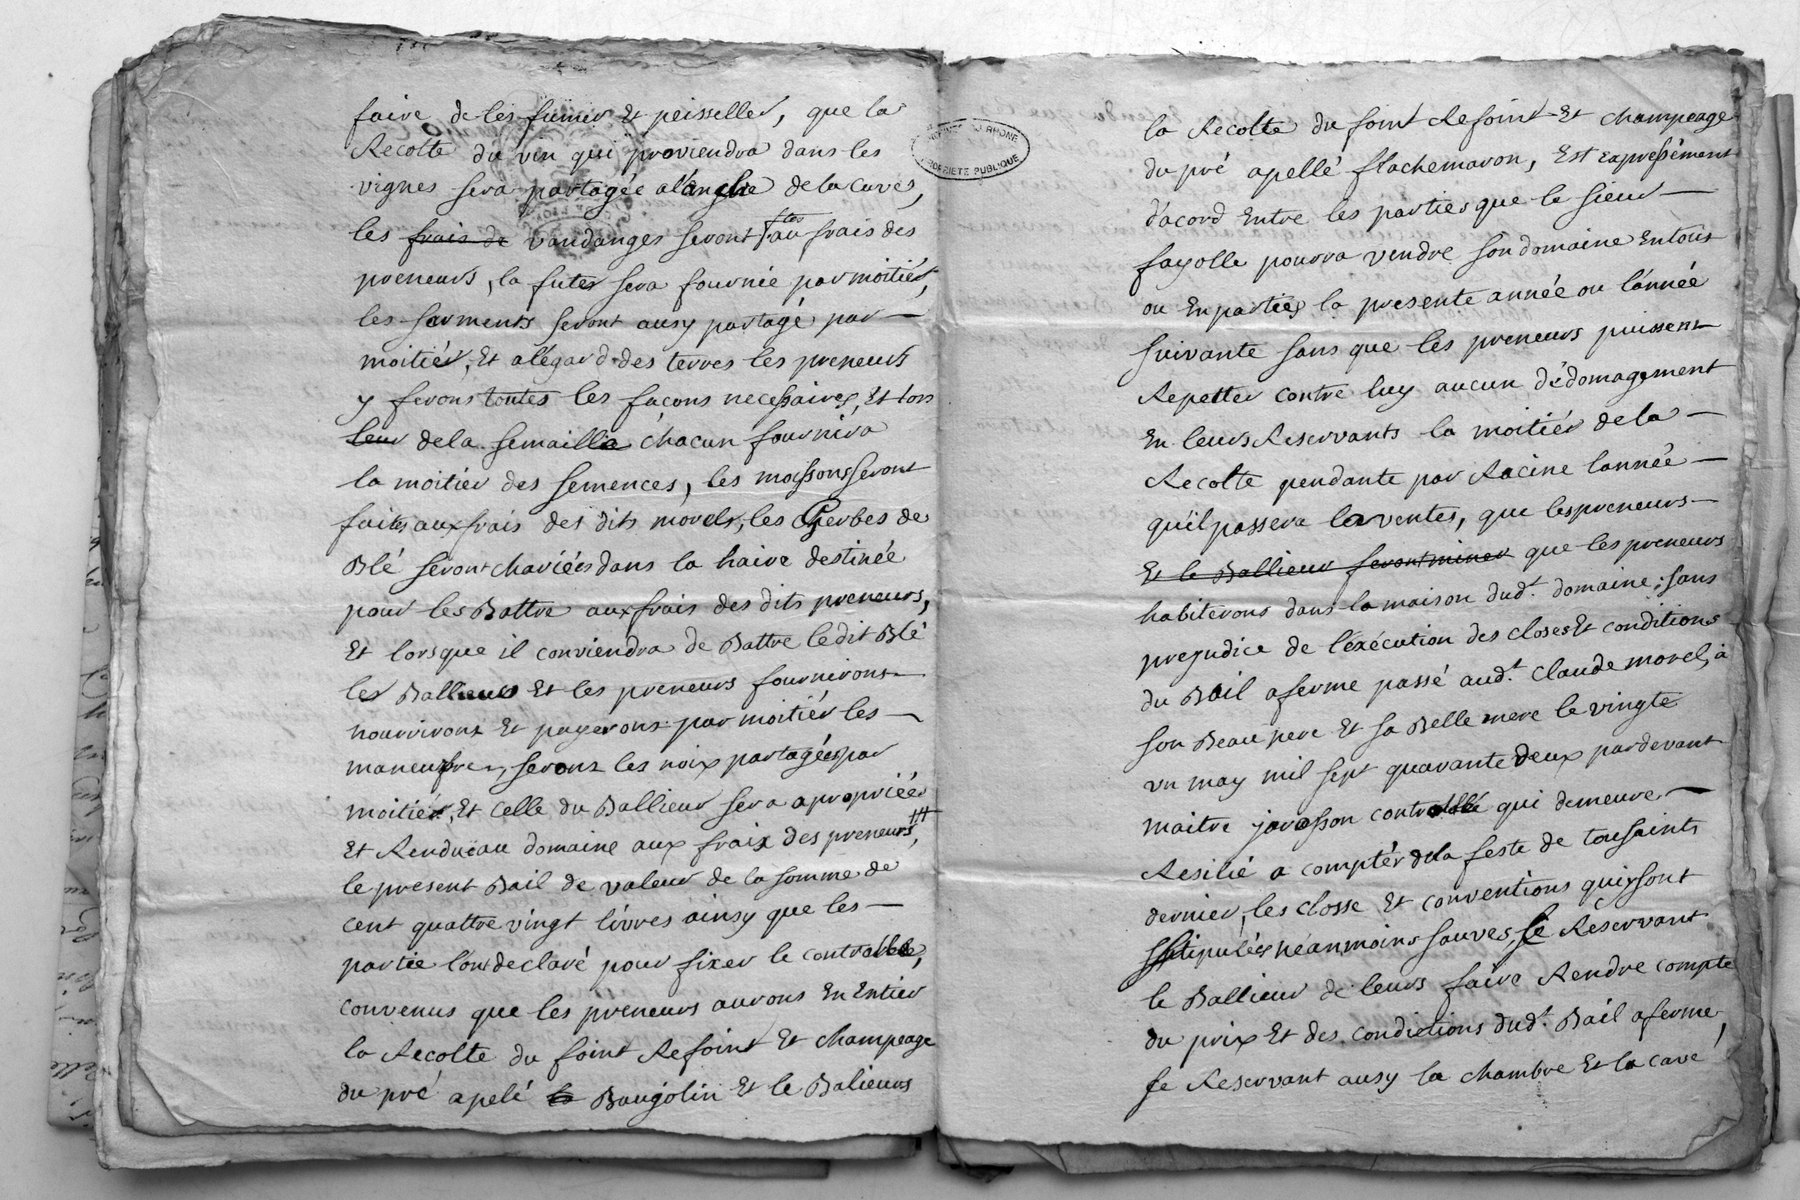 faire de les fumier Et peisseller, que la
Recolte du vin qui proviendra dans les
vignes sera partagée a l'anche de la cuves,
les frais de vandanges seront faites au frais des
preneurs, la futes sera fournie par moitiér,
les sarments seront ausy partagé par
moitiér, Et alégard des terres les preneurs
y ferons toutes les façons necessaires, Et lors
leur de la semaille chacun fournira
la moitiér des semences, les moissons seront
faites aux frais des dits morels, les Gerbes de
Blé seront chariées dans la haire destinée
pour les Battre aux frais des dits preneurs,
Et lorsque il conviendra de Battre le dit Blé
les Ballieurs Et les preneurs fournirons
nourrirons Et payerons par moitiér les
maneuvres, serons les noix partagées par
moitiér, Et celle du Ballieur sera apropriéer
Et Rendue au domaine aux fraix des preneurs,
le present Bail de valeur de la somme de
cent quattre vingt livres ainsy que les
partie l'ont declaré pour fixer le controlle,
convenus que les preneurs aurons En Entier
la Recolte du foint Refoint Et champeage
du pré apelé le Baujolin Et le Balieurs
PROPRIETE PUBLIQUE
la Recolte du foint Refoint Et champeage
du pré apellé flachemaron, Est expressément
d'acord Entre les parties que le sieur
fayolle pourra vendre son domaine En tous
ou En parties la presente année ou l'année
suivante sans que les preneurs puissent
Repetter contre luy aucun dédomagement
En leurs Reservants la moitiér de la
Recolte pendante par Racine l'année
qu'il passera la ventes, que les preneurs
Et le Ballieur feront miner que les preneurs
habiterons dans la maison dud.t domaine; sans
prejudice de l'exécution des closes Et conditions
du Bail aferme passé aud.t Claude morel, à
son Beau pere Et sa Belle mere le vingte
un may mil sept quarante deux pardevant
maitre jarosson controllé qui demeure
Resilié a comptér de la feste de tousaints
dernier, les closse Et conventions qui y sont
stipulées néanmoins sauves, se Reservant
le Ballieur de leurs faire Rendre compte
du prix Et des condictions dud.t Bail aferme,
se Reservant ausy la chambre Et la cave